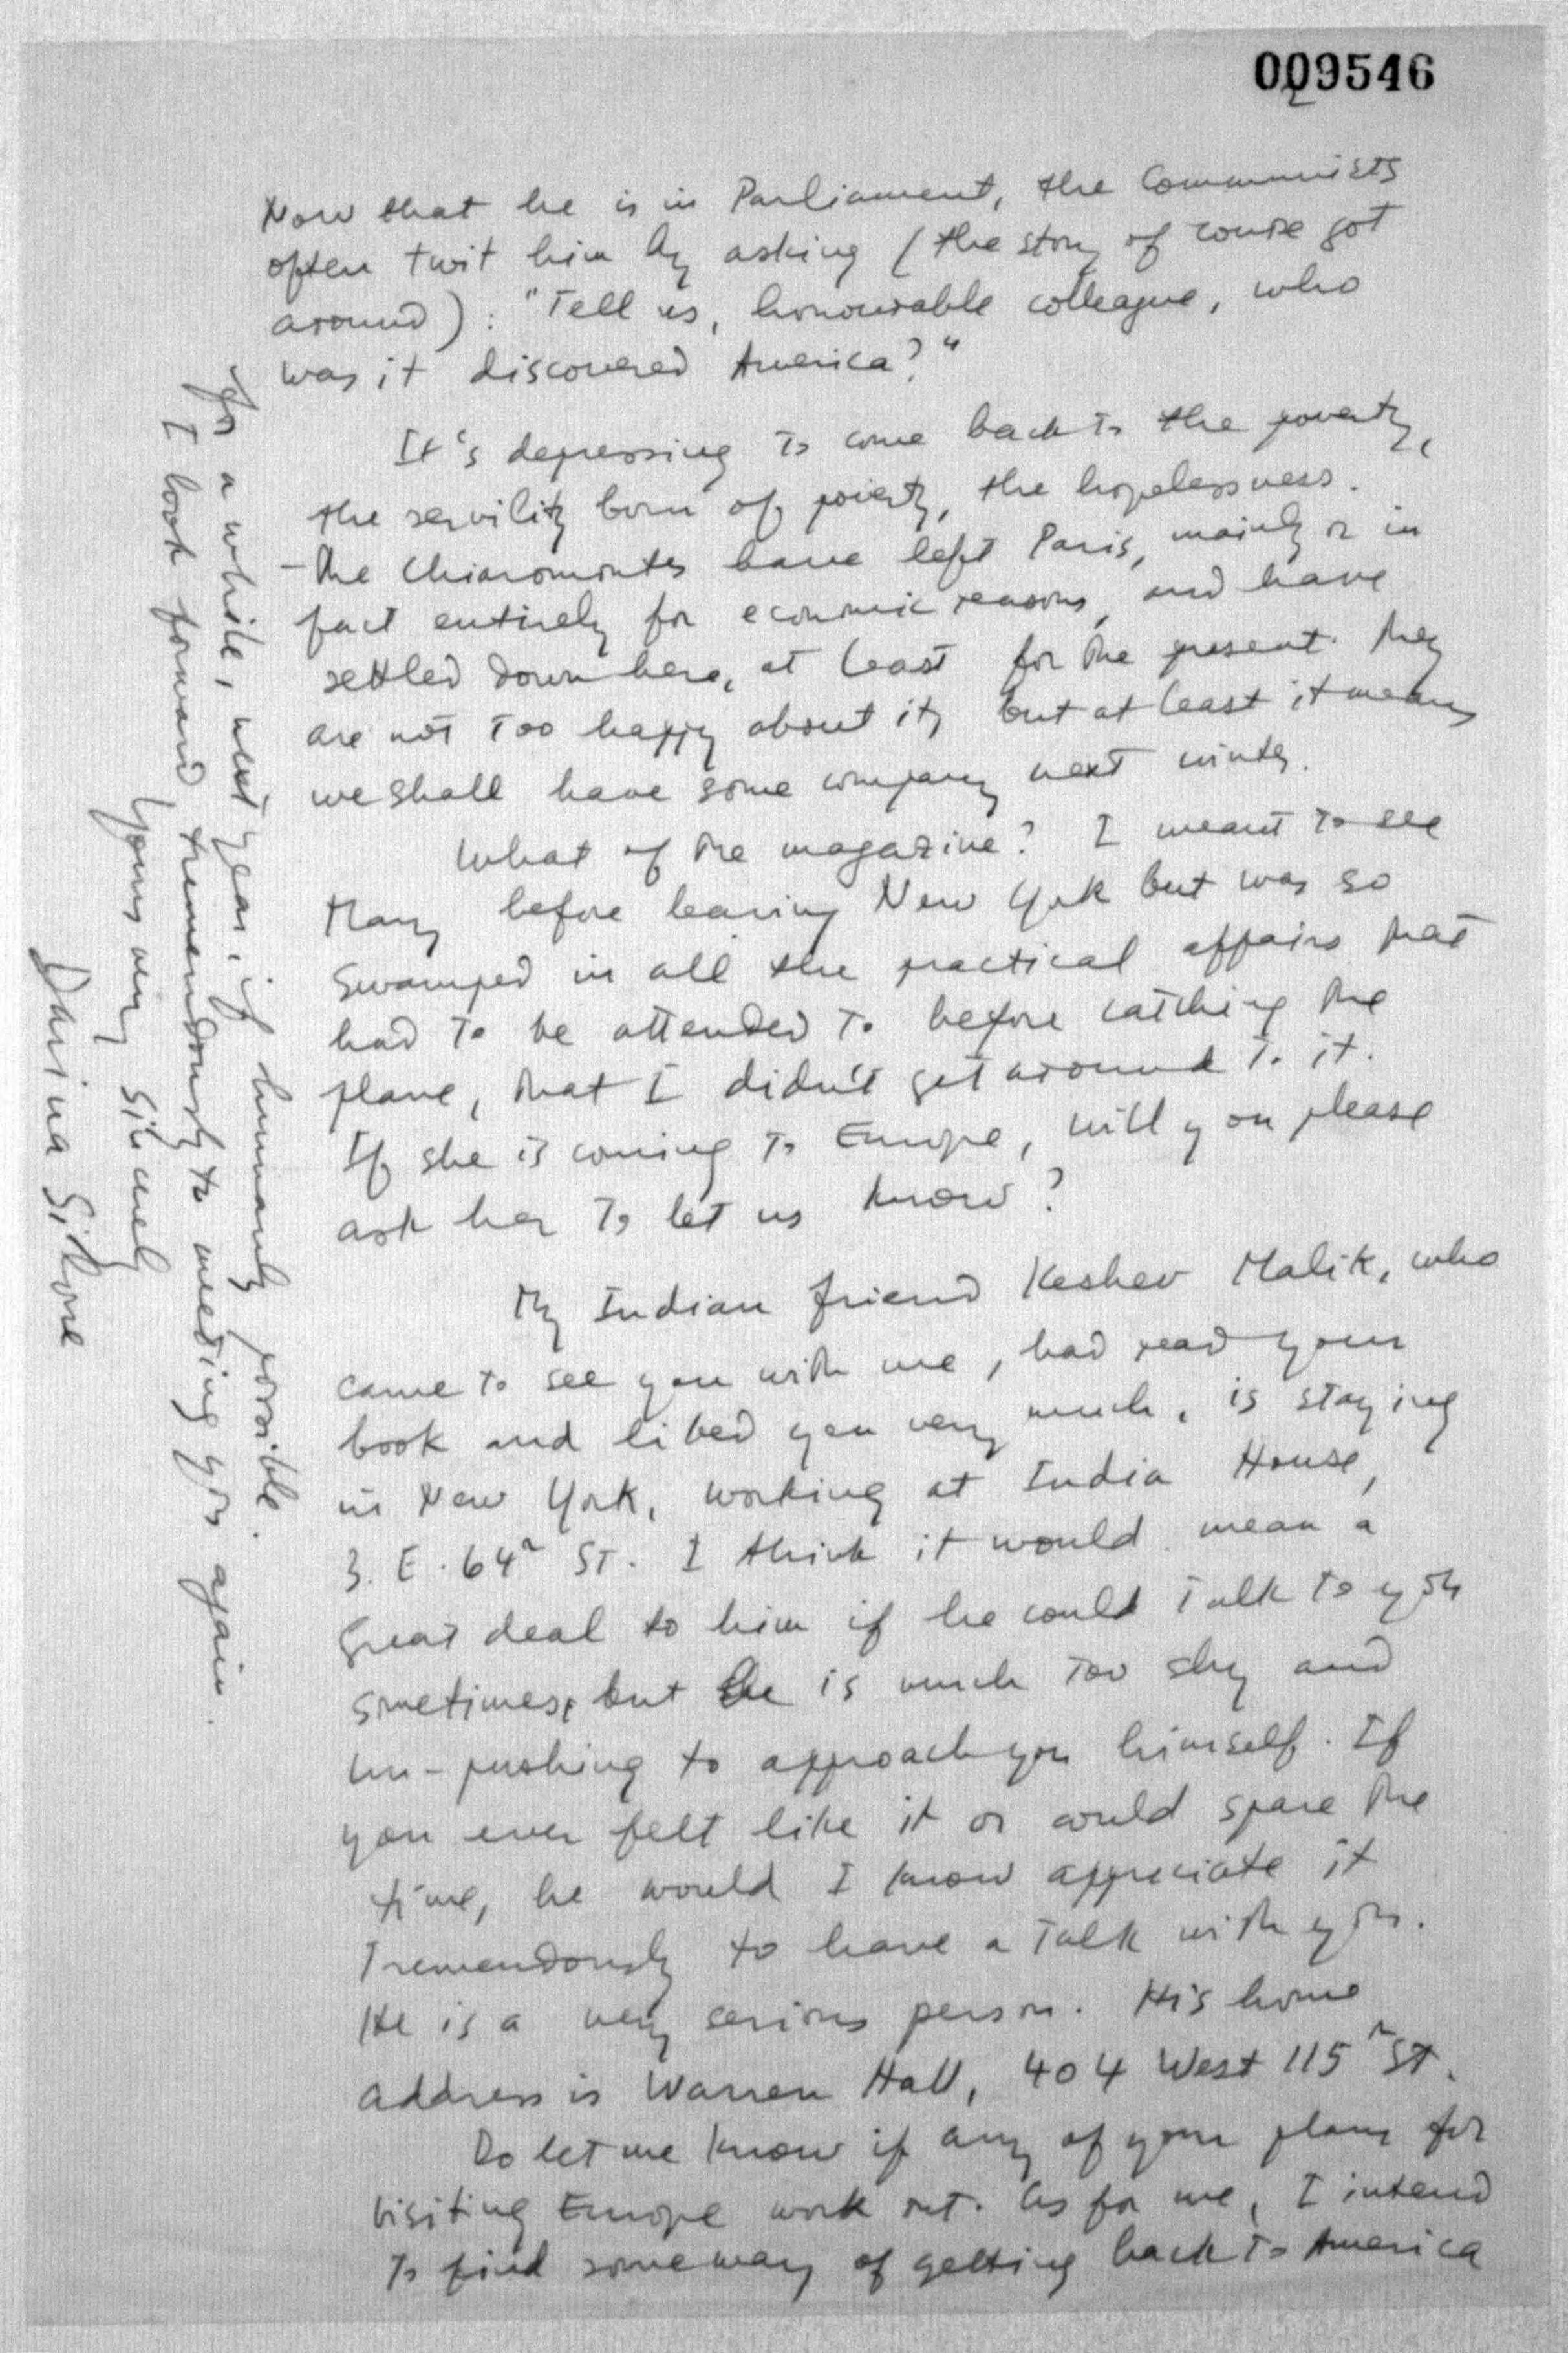 009546
Now that he is in Parliament, the Communists
often twit him by asking (the story of course got
around): "Tell us, honourable colleague, who
was it discovered America?"
It's depressing to come back to the poverty,
the servility born of poverty, the hopelessness.
- The Chiaromontes have left Paris, mainly or in
fact entirely for economic reasons, and have
settled down here, at least for the present. They
are not too happy about it, but at least it means
we shall have some company next winter.
What of the magazine? I meant to see
Mary before leaving New York but was so
swamped in all the practical affairs that
had to be attended to before catching the
plane, that I didn't get around to it.
If she is coming to Europe, will you please
ask her to let us know?
My Indian friend Keshev Malik, who
came to see you with me, had read your
book and liked you very much, is staying
in New York, working at India House,
3. E. 64th St. I think it would mean a
great deal to him if he could talk to you
sometimes, but he is much too shy and
un-pushing to approach you himself. If
you ever felt like it or could spare the
time, he would I know appreciate it
tremendously to have a talk with you.
He is a very serious person. His home
address is Warren Hall, 404 West 115th St.
Do let me know if any of your plans for
visiting Europe work out. As for me, I intend
to find some way of getting back to America
for a while, next year, if humanly possible.
I look forward tremendously to meeting you again.
Yours very sincerely
Darina Silone